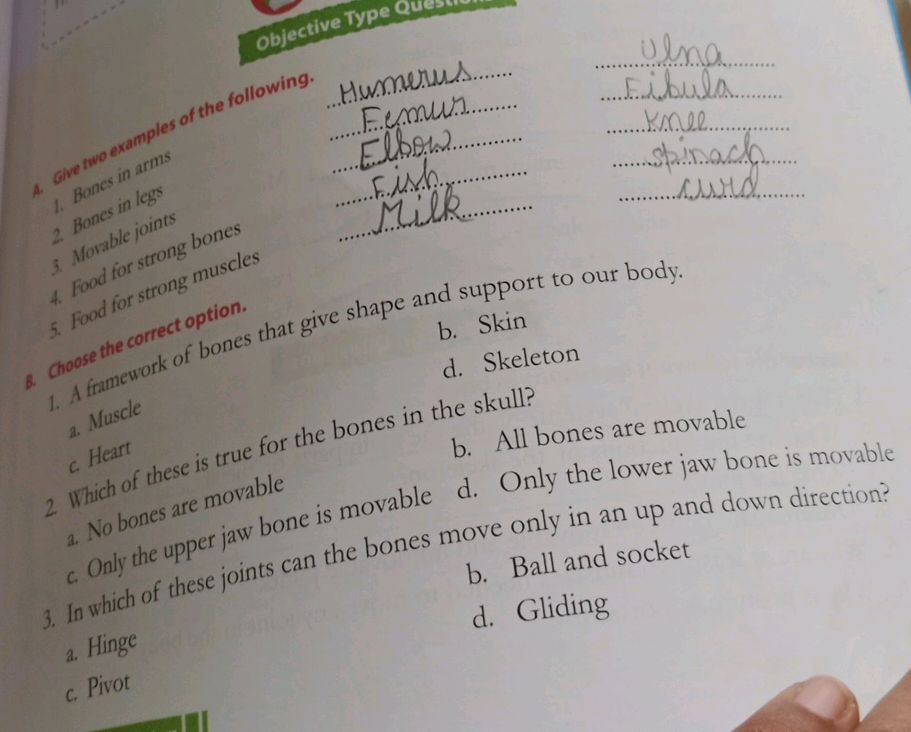 Objective Type
A. Give two examples of the following.
1. Bones in arms Humerus Ulna
2. Bones in legs Femur Fibula
3. Movable joints Elbow Knee
4. Food for strong bones Fish spinach
5. Food for strong muscles Milk curd
B. Choose the correct option.
1. A framework of bones that give shape and support to our body.
a. Muscle b. Skin
c. Heart d. Skeleton
2. Which of these is true for the bones in the skull?
a. No bones are movable b. All bones are movable
c. Only the upper jaw bone is movable d. Only the lower jaw bone is movable
3. In which of these joints can the bones move only in an up and down direction?
a. Hinge b. Ball and socket
c. Pivot d. Gliding